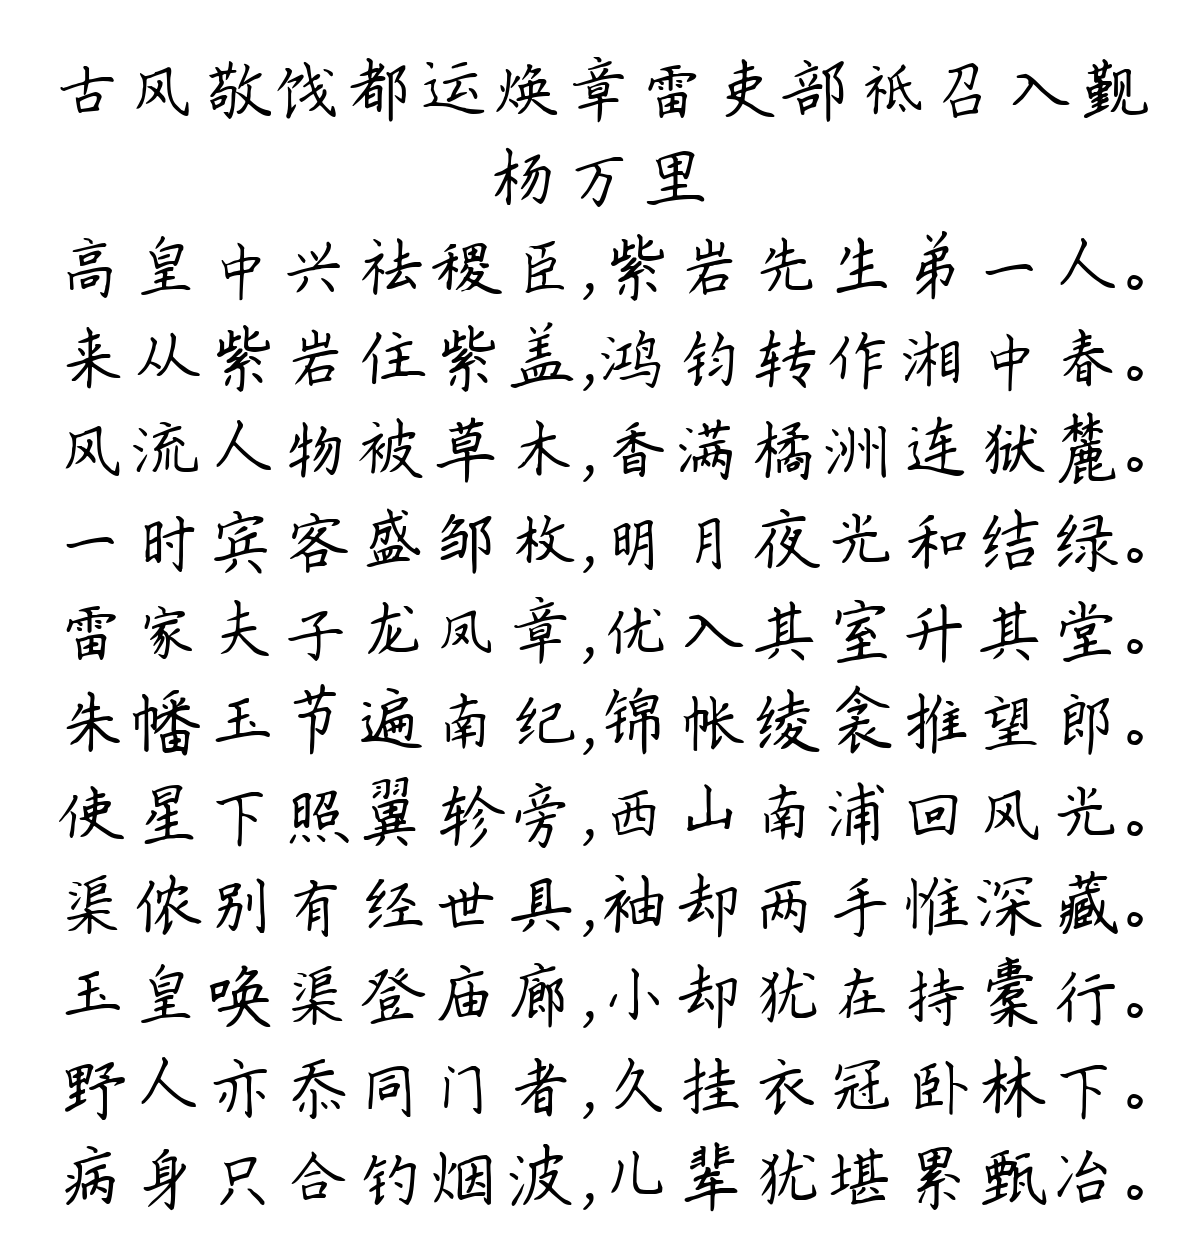 古风敬饯都运焕章雷吏部祗召入觐
杨万里
高皇中兴祛稷臣,紫岩先生弟一人。
来从紫岩住紫盖,鸿钧转作湘中春。
风流人物被草木,香满橘洲连狱麓。
一时宾客盛邹枚,明月夜光和结绿。
雷家夫子龙凤章,优入其室升其堂。
朱幡玉节遍南纪,锦帐绫衾推望郎。
使星下照翼轸旁,西山南浦回风光。
渠侬别有经世具,袖却两手惟深藏。
玉皇唤渠登庙廊,小却犹在持橐行。
野人亦忝同门者,久挂衣冠卧林下。
病身只合钓烟波,儿辈犹堪累甄冶。